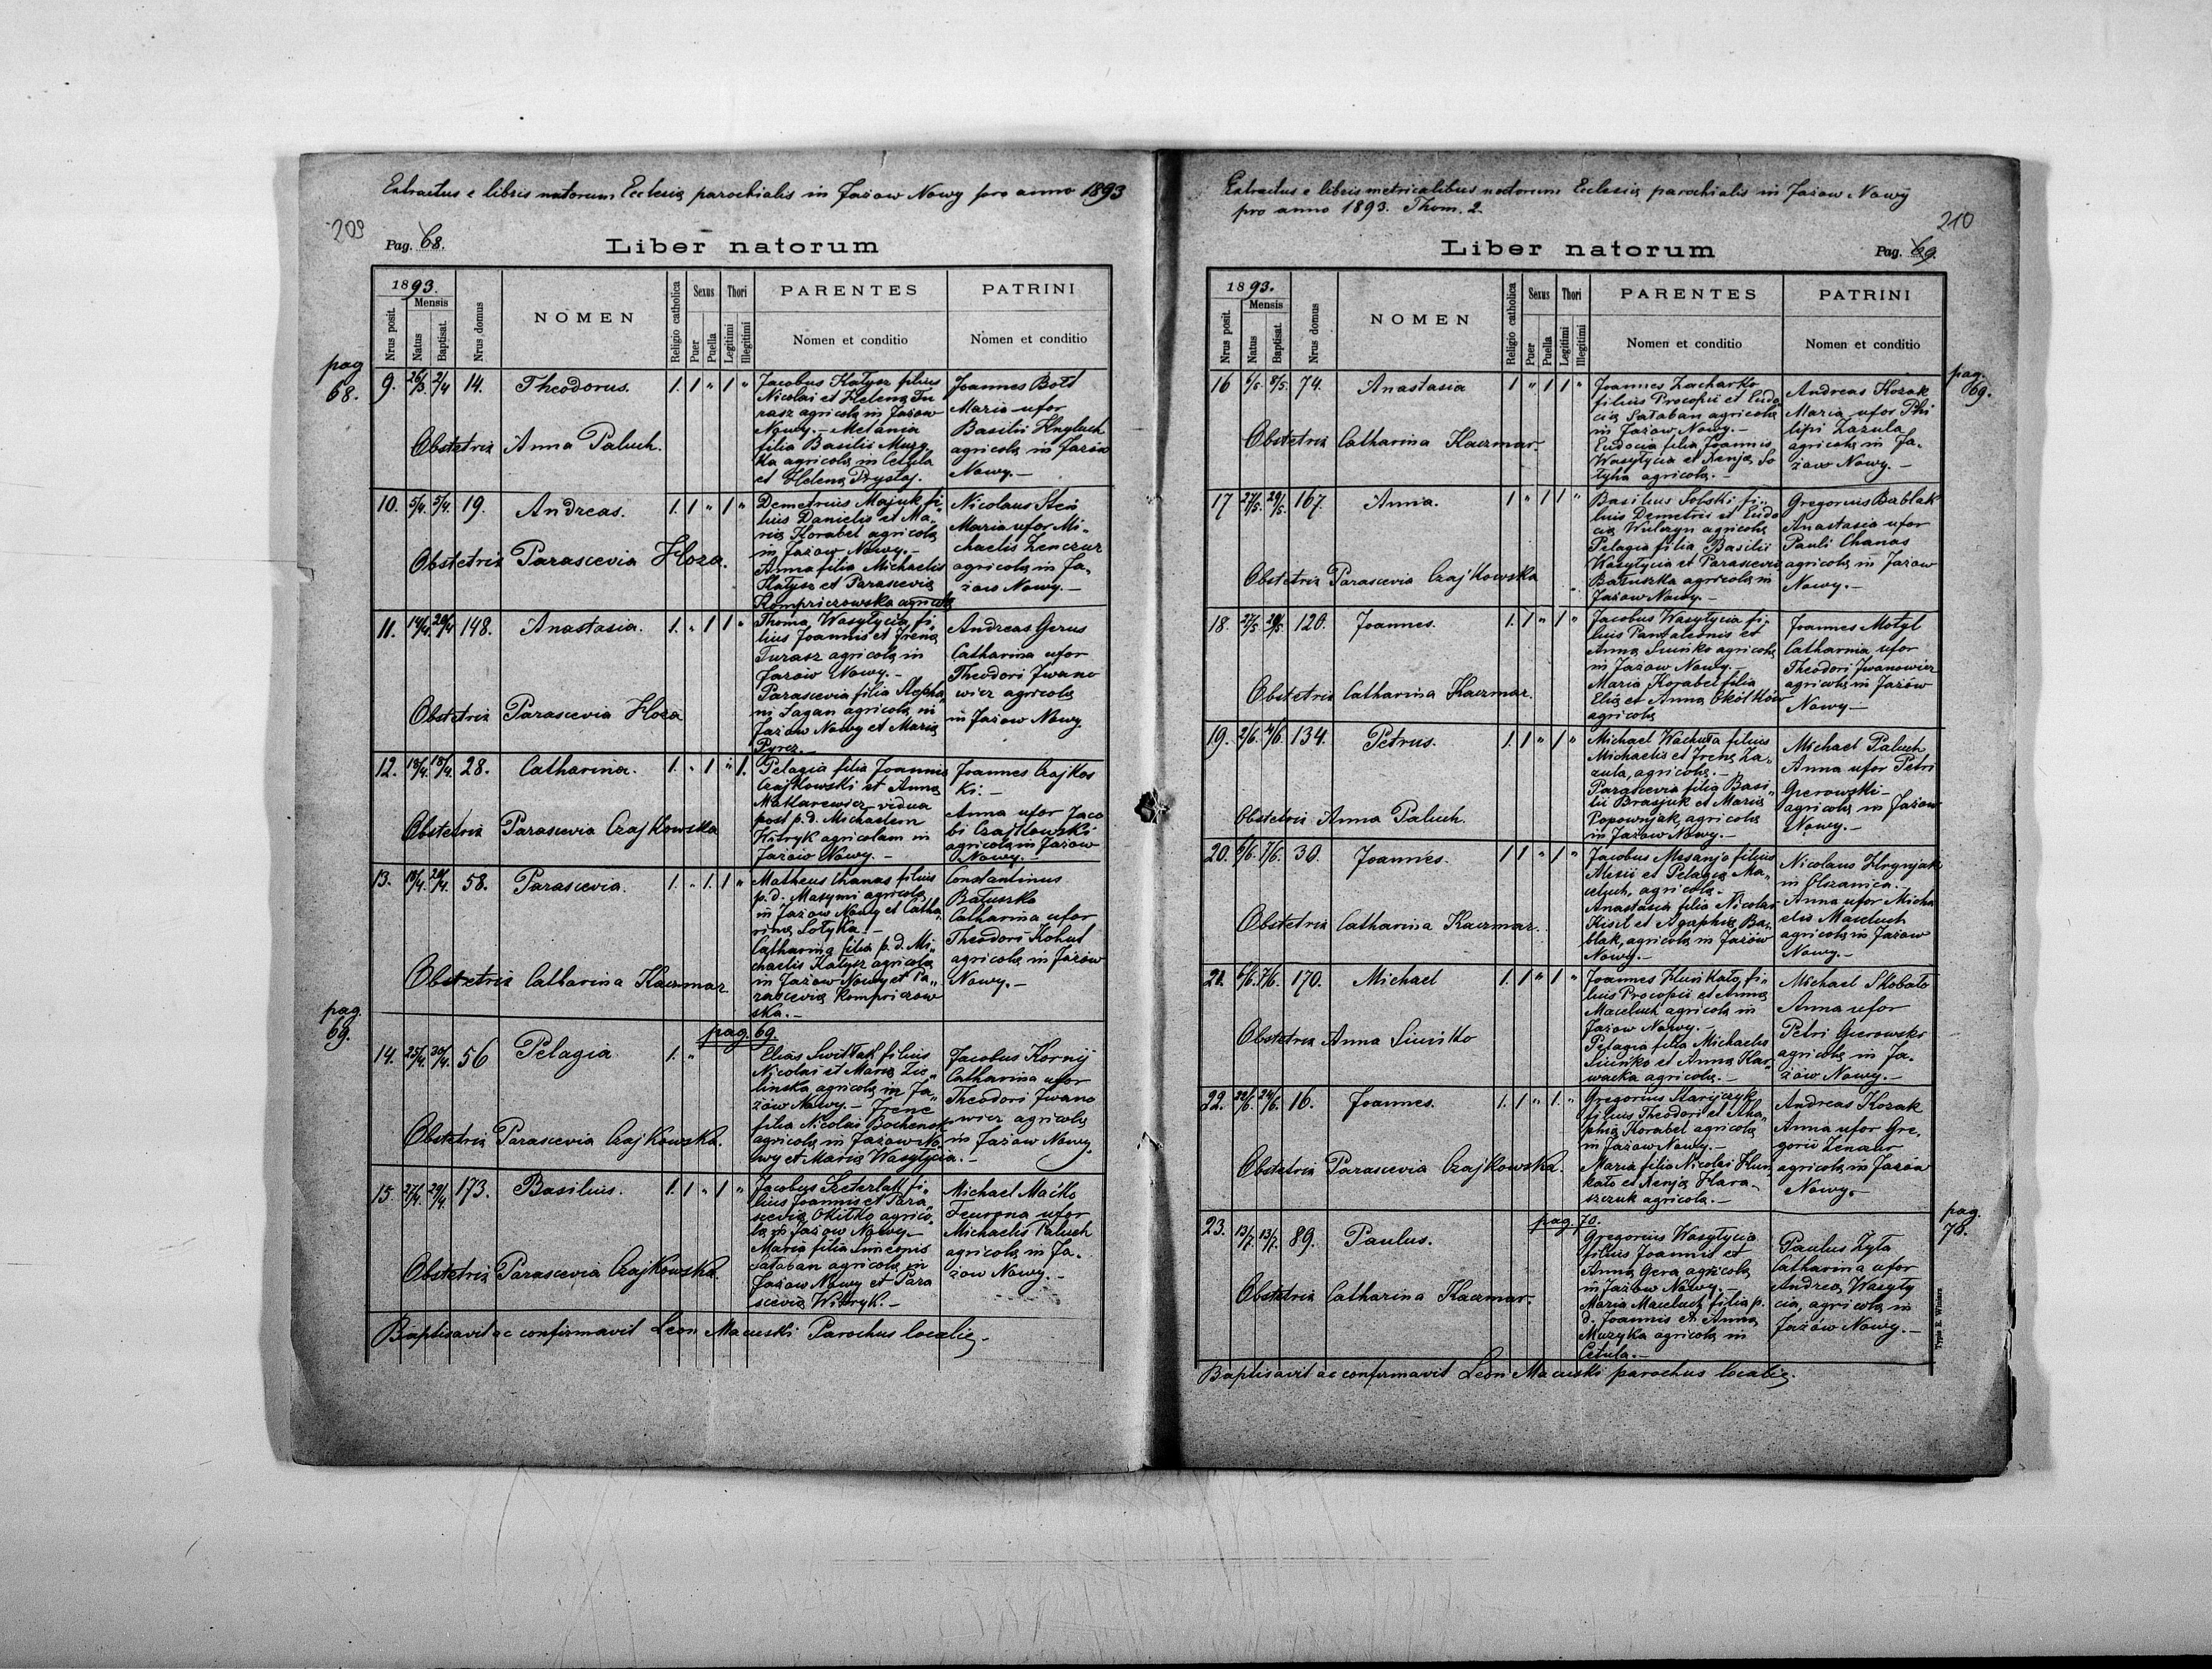 Extractus e libris natorum Ecclesiæ parochialis in Jażow Nowy pro anno 1893
209
Pag. 68.
Liber natorum
1893.
Mensis
Nrus posit.
Natus
Baptisat.
Nrus domus
NOMEN
Religio catholica
Sexus
Puer
Puella
Thori
Legitimi
Illegitimi
PARENTES
Nomen et conditio
PATRINI
Nomen et conditio
pag
68.
9. 26/3 2/4 14. Theodorus. 1. 1 " 1 "
Obstetrix Anna Paluch.
Jacobus Kałysz filius
Nicolai et Helenæ Tu
rasz agricola in Jażow
Nowy. – Melania
filia Basilii Muzy
ka agricolæ in Cetula
et Helenæ Prystaj.
Joannes Bołd
Maria uxor
Basilii Hnyluch
agricolæ in Jażów
Nowy. –
10. 5/4. 5/4. 19. Andreas. 1. 1 " 1 "
Obstetrix Parascevia Hoza.
Demetrius Majuk fi-
lius Danielis et Ma-
riæ Korabel agricola
in Jażow Nowy. –
Anna filia Michaelis
Kałysz et Parasceviæ
Kompriczowska agricolæ
Nicolaus Steń
Maria uxor Mi-
chaelis Zenczur
agricolæ in Ja-
żow Nowy. –
11. 14/4. 20/4 148. Anastasia. 1. " 1 1 "
Obstetrix Parascevia Hoza
Thoma Wasyłycia fi-
lius Joannis et Irenæ
Turasz agricola in
Jażow Nowy. –
Parascevia filia Stepha
ni Sagan agricolæ in
Jażow Nowy et Mariæ
Pyrcz. –
Andreas Gerus
Catharina uxor
Theodori Iwano
wicz agricolæ
in Jażow Nowy
12. 18/4. 18/4. 28. Catharina. 1. " 1 " 1.
Obstetrix Parascevia Czajkowska
Pelagia filia Joannis
Czajkowski et Annæ
Makarewicz vidua
post p.d. Michaelem
Witryk agricolam in
Jażów Nowy. –
Joannes Czajkos
ki. –
Anna uxor Jaco
bi Czajkowski
agricolæ in Jażow
Nowy. –
13. 18/4. 20/4. 58. Parascevia. 1. " 1. 1 "
Obstetrix Catharina Kaczmar
Matheus Chanas filius
p.d. Maxymi agricola
in Jażow Nowy et Catha
rinæ Sotyka. –
Catharina filia p.d. Mi-
chaelis Kałysz agricolæ
in Jażow Nowy et Pa-
rasceviæ Kompriczow
ska. –
Constantinus
Batuszka
Catharina uxor
Theodori Kohut
agricolæ in Jażów
Nowy. –
pag.
69.
pag. 69
14. 25/4. 30/4. 56 Pelagia 1. "
Obstetrix Parascevia Czajkowska.
Elias Switłak filius
Nicolai et Mariæ Zie
linska agricola in Ja-
żów Nowy. – Irene
filia Nicolai Bochenek
agricolæ in Jażow No
wy et Mariæ Wasyłycia. –
Jacobus Kornij
Catharina uxor
Theodori Iwano
wicz agricolæ
in Jażow Nowy.
15. 27/4. 29/4. 173. Basilius. 1. 1 " 1 "
Obstetrix Parascevia Czajkowska.
Jacobus Szeterlak fi-
lius Joannis et Para
sceviæ Okitko agrico-
la in Jażow Nowy. –
Maria filia Simeonis
Sałaban agricolæ in
Jażow Nowy et Para
sceviæ Witryk. –
Michael Maćko
Feurona uxor
Michaelis Paluch
agricolæ in Ja-
żow Nowy. –
Baptisavit ac confirmavit Leon Macuski Parochus localis.
Extractus e libris metricalibus natorum Eclesiæ parochialis in Jażow Nowy
pro anno 1893. Thom. 2.
210
Liber natorum
Pag. 69.
1893.
Mensis
Nrus posit.
Natus
Baptisat.
Nrus domus
NOMEN
Religio catholica
Sexus
Puer
Puella
Thori
Legitimi
Illegitimi
PARENTES
Nomen et conditio
PATRINI
Nomen et conditio
pag.
69.
16 74. Anastasia 1 " 1 1 "
Obstetrix Catharina Kaczmar.
Joannes Zacharko
filius Procopii et Eudo
ciæ Sałaban agricola
in Jażow Nowy. –
Eudocia filia Joannis
Wasyłycia et Xenjæ So
tyha agricolæ. –
Andreas Kozak
Maria uxor Phi
lipi Zazula
agricolæ in Ja-
żow Nowy. –
17 27/5. 29/5. 167. Anna. 1 " 1 1 "
Obstetrix Parascevia Czajkowska
Basilius Sobski fi-
lius Demetrii et Eudo
ciæ Wulczyn agricola
Pelagia filia Basilii
Wasyłycia et Parasceviæ
Batuszka agricolæ in
Jażow Nowy. –
Gregorius Bablak
Anastasia uxor
Pauli Chanas
agricolæ in Jażow
Nowy. –
18. 27/5. 28/5. 120. Joannes. 1. 1 " 1 "
Obstetrix Catharina Kaczmar.
Jacobus Wasyłycia fi-
lius Pantaleonis et
Annæ Siuśko agricola
in Jażow Nowy. –
Maria Korabel filia
Eliæ et Annæ Okółków
agricolæ
Joannes Motyl
Catharina uxor
Theodori Iwanowicz
agricolæ in Jażów
Nowy –
19. 2/6. 4/6. 134. Petrus. 1. 1 " 1 "
Obstetrix Anna Paluch.
Michael Wachuta filius
Michaelis et Irenæ Za-
zula, agricola. –
Parascevia filia Basi-
lii Brasjuk et Mariæ
Popownjak, agricolæ
in Jażow Nowy. –
Michael Paluch
Anna uxor Petri
Gierowski –
agricolæ in Jażow
Nowy. –
20. 5/6. 7/6. 30. Joannes. 1 1 " 1 "
Obstetrix Catharina Kaczmar.
Jacobus Mesanjo filius
Alexii et Pelagiæ Ma-
celuch, agricola. –
Anastasia filia Nicolai
Kisil et Agaphiæ Ba-
blak, agricolæ in Jażów
Nowy. –
Nicolaus Hrynjak
in Olszanica. –
Anna uxor Micha
elis Maceluch
agricolæ in Jażow
Nowy. –
21. 6/6. 7/6. 170. Michael 1. 1 " 1 "
Obstetrix Anna Siuśko
Joannes Huńkało, fi-
lius Procopii et Annæ
Maceluch agricola in
Jażow Nowy. –
Pelagia filia Michaelis
Siuśko et Annæ Har
wacka agricolæ. –
Michael Skobało
Anna uxor
Petri Gierowski
agricolæ in Ja-
żów Nowy. –
22. 22/6. 24/6. 16. Joannes. 1. 1 " 1. "
Obstetrix Parascevia Czajkowska.
Gregorius Staryczyk
filius Theodori et Aha-
phiæ Korabel agricola
in Jażow Nowy. –
Maria filia Nicolai Hun
kało et Xenjæ Hara-
szczuk agricolæ. –
Andreas Kozak
Anna uxor Gre-
gorii Zenczur
agricolæ in Jażów
Nowy.
pag. 70.
pag.
70.
23. 13/7. 13/7. 89. Paulus.
Obstetrix Catharina Kaczmar.
Gregorius Wasyłycia
filius Joannis et
Annæ Gera agricola
in Jażow Nowy. –
Maria Maceluch filia p.
d. Joannis et Annæ
Muzyka agricolæ in
Cetula. –
Paulus Zyła
Catharina uxor
Andreæ Wasyły
cia, agricolæ in
Jażów Nowy. –
Baptisavit ac confirmavit Leon Macuski parochus localis.
Typis E. Winiarz